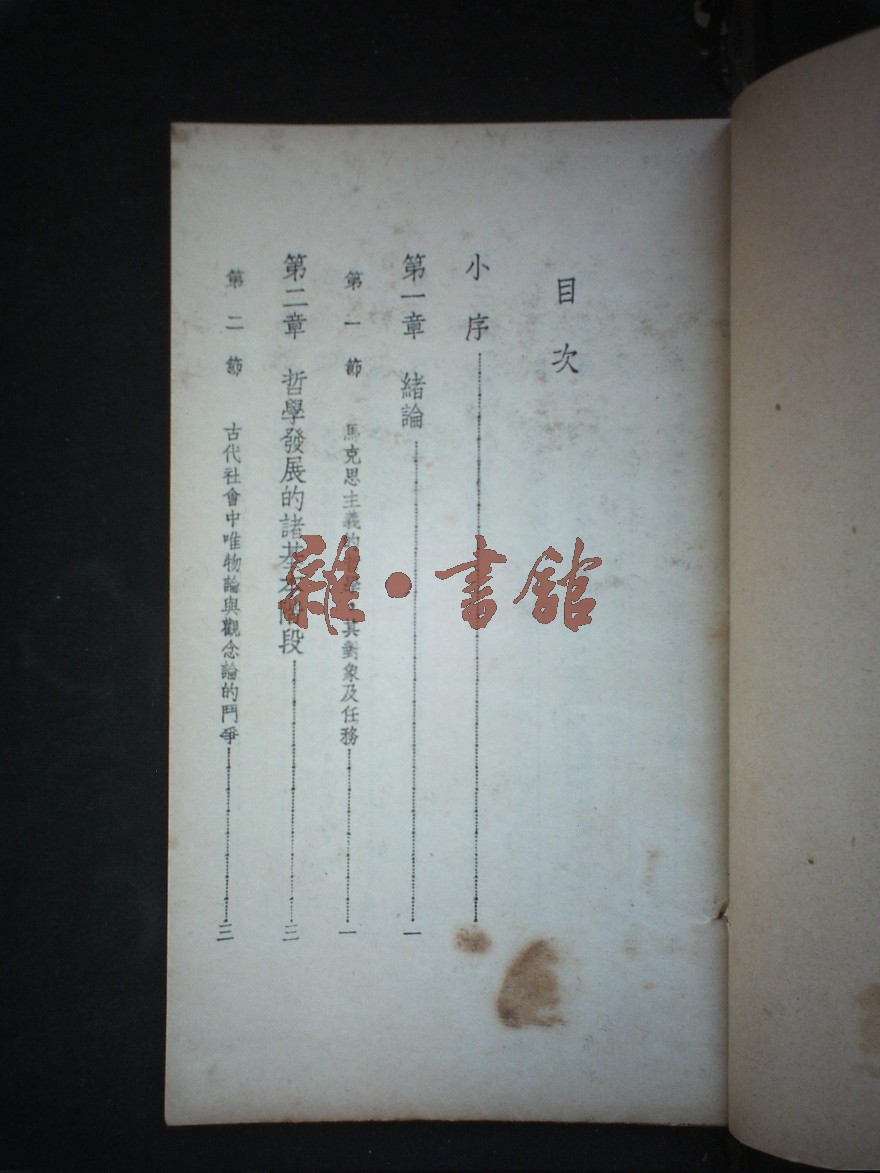 目次
小序
第一章 緒論 一
第一節 馬克思主義的 其對象及任務 一
第二章 哲學發展的諸基本階段 三
第二節 古代社會中唯物論與觀念論的鬥爭 三
雜·書舘